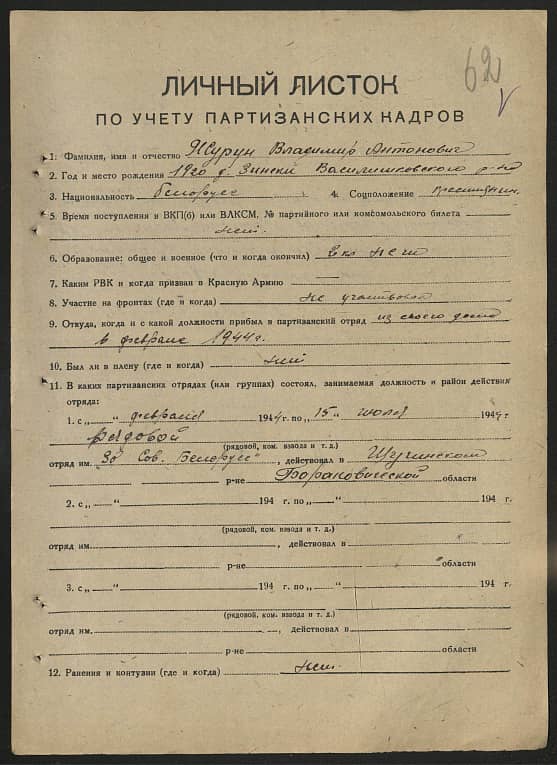 62
ЛИЧНЫЙ ЛИСТОК
ПО УЧЕТУ ПАРТИЗАНСКИХ КАДРОВ
1. Фамилия, имя и отчество Журун Владимир Антонович
2. Год и место рождения 1920 д. Зински Василишковского р-на
3. Национальность белорусс 4. Соцположение крестьянин
5. Время поступления в ВКП(б) или ВЛКСМ, № партийного или комсомольского билета
нет.
6. Образование: общее и военное (что и когда окончил) 2 кл
7. Каким РВК и когда призван в Красную Армию —
8. Участие на фронтах (где и когда) не участвовал
9. Откуда, когда и с какой должности прибыл в партизанский отряд из своего дома
в феврале 1944г.
10. Был ли в плену (где и когда) нет
11. В каких партизанских отрядах (или группах) состоял, занимаемая должность и район действия
отряда:
1. с „ “ февраля 1944 г. по „15“ июля 1944 г
Рядовой
(рядовой, ком. взвода и т. д.)
отряд им. За Сов. Белорусс", действовал в Щучинском
р-не Барановической области
2. с „ “ 194 г. по „ “ 194 г.
(рядовой, ком. взвода и т. д.)
отряд им. , действовал в
р-не области
3. с „ “ 194 г. по „ “ 194 г.
(рядовой, ком. взвода и т. д.)
отряд им. , действовал в
р-не области
12. Ранения и контузии (где и когда) нет.